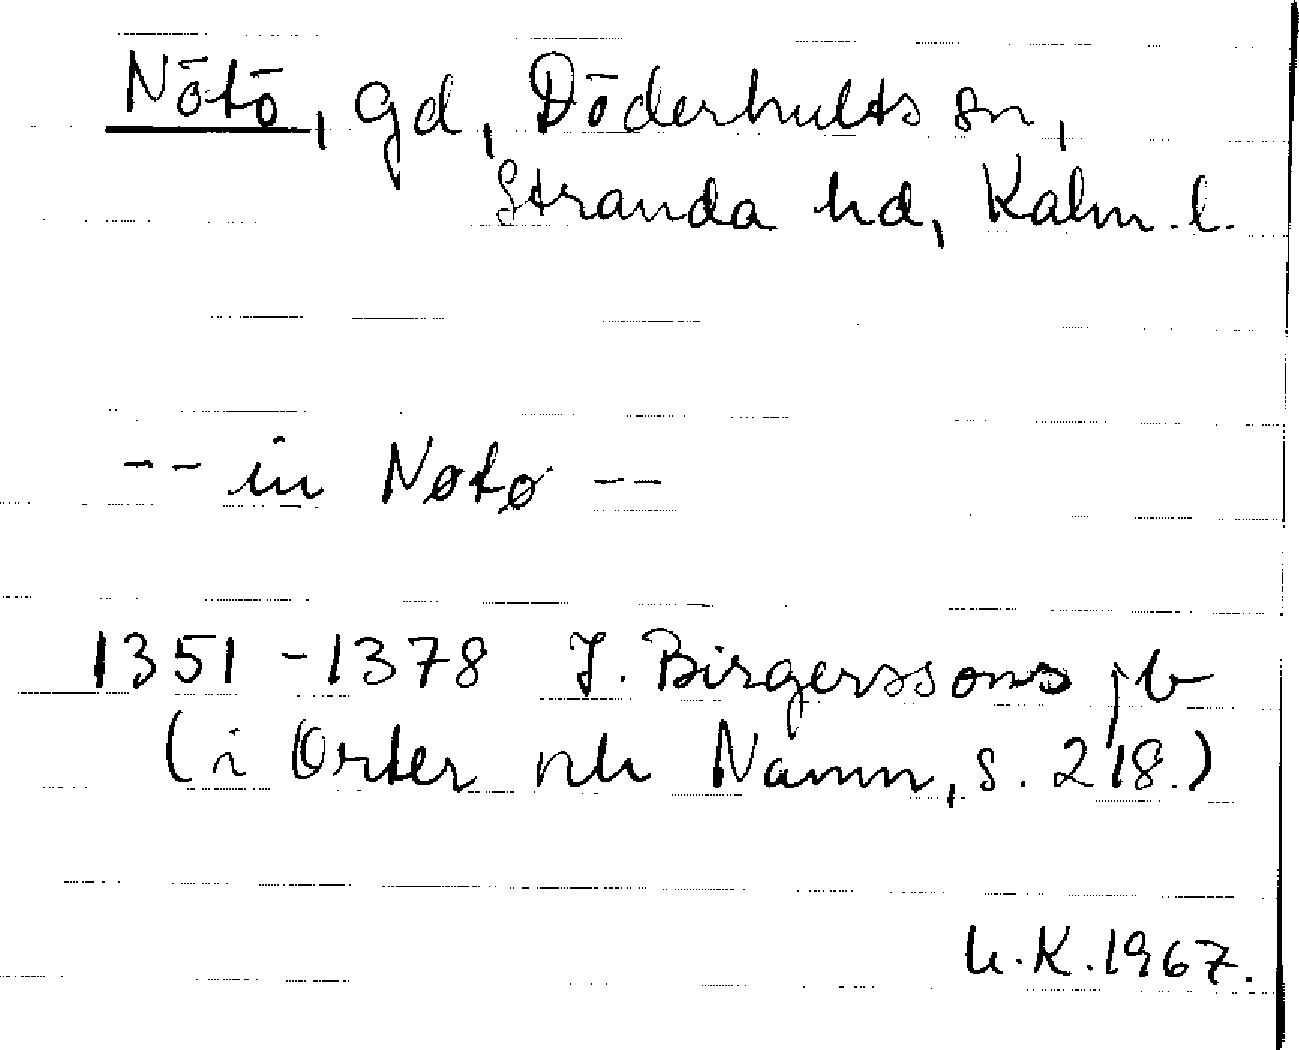 Nötö, gd, Döderhults sn,
Stranda hd, Kalm. l.
-- in Nøtø --
1351-1378 J. Birgerssons jb
(i Orter och Namn, s. 218.)
U.K. 1967.